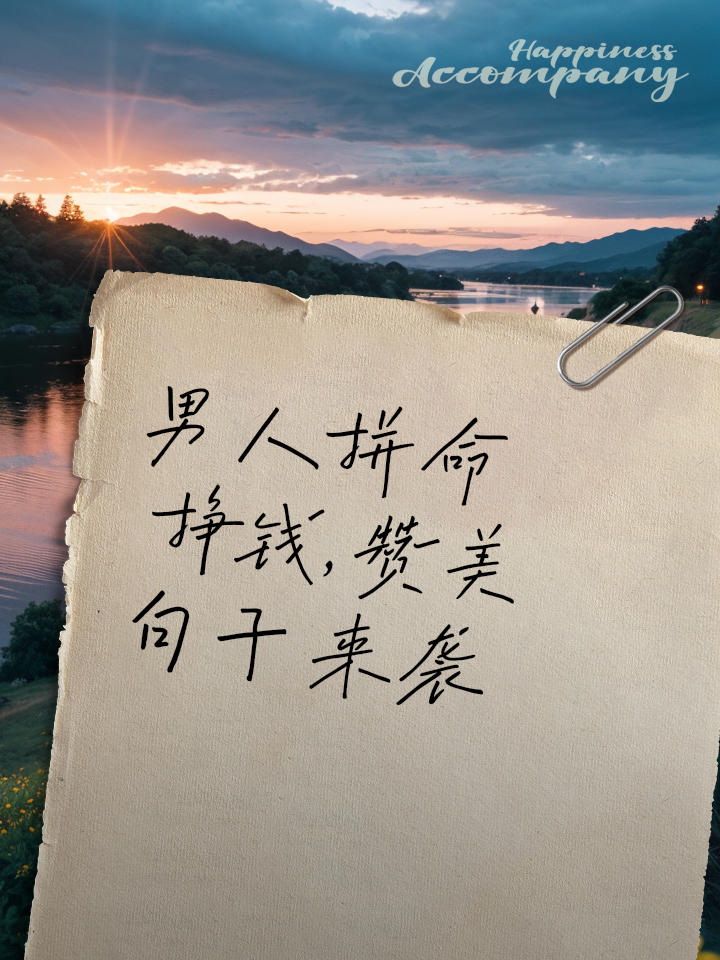 Happiness
Accompany
男人拼命
挣钱,赞美
句子来袭